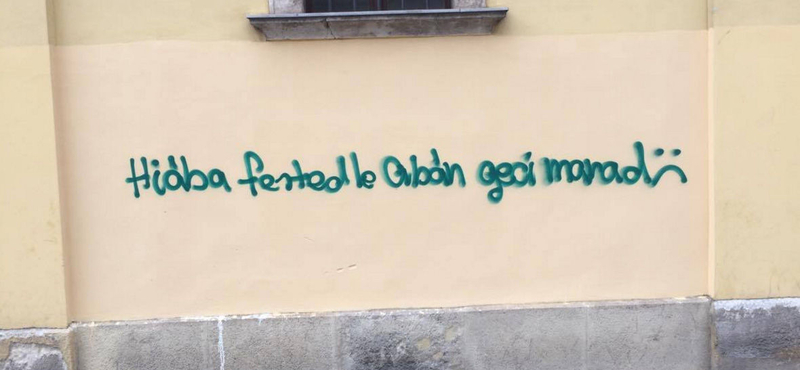 Hiába fested le Orbán geci marad :(